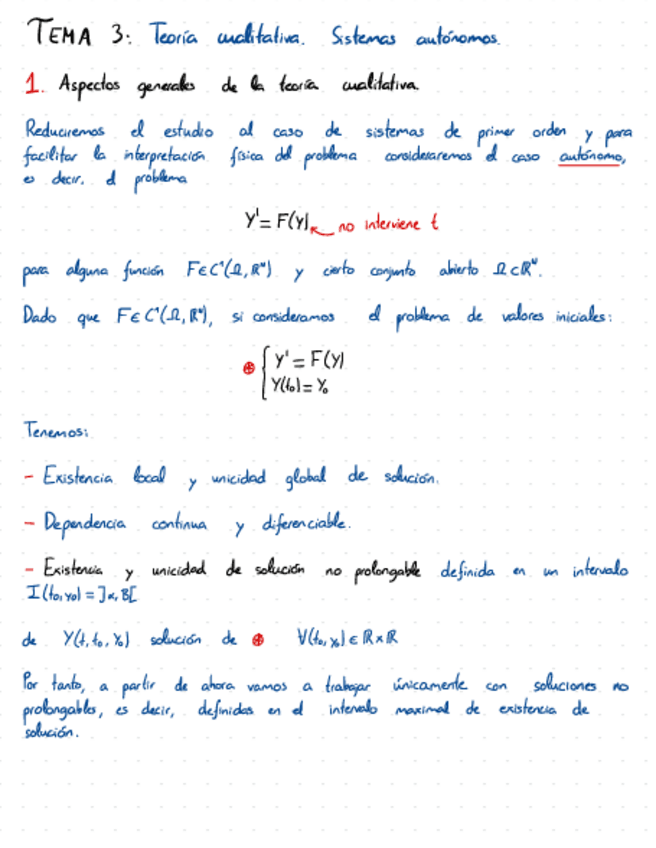 TEMA 3: Teoría cualitativa. Sistemas autónomos.
1. Aspectos generales de la teoría cualitativa.
Reduciremos el estudio al caso de sistemas de primer orden y para
facilitar la interpretación física del problema consideraremos el caso autónomo,
es decir, el problema
Y'= F(Y) no interviene t
para alguna función F∈C¹(Ω,ℝⁿ) y cierto conjunto abierto Ω⊂ℝⁿ.
Dado que F∈C¹(Ω,ℝⁿ), si consideramos el problema de valores iniciales:
⊕ { Y'= F(Y)
Y(t₀)= Y₀
Tenemos:
- Existencia local y unicidad global de solución.
- Dependencia continua y diferenciable.
- Existencia y unicidad de solución no prolongable definida en un intervalo
I(t₀,y₀) = ]α,β[
de Y(t,t₀,Y₀) solución de ⊕ ∀(t₀,y₀)∈ℝ×ℝ
Por tanto, a partir de ahora vamos a trabajar únicamente con soluciones no
prolongables, es decir, definidas en el intervalo maximal de existencia de
solución.